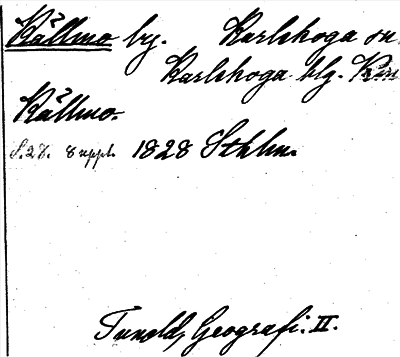 Källmo by. Karlskoga sn.
Karlskoga blg.
Källmo.
S. 28. 8 uppl. 1828 Sthlm.
Tuneld, Geografi. II.